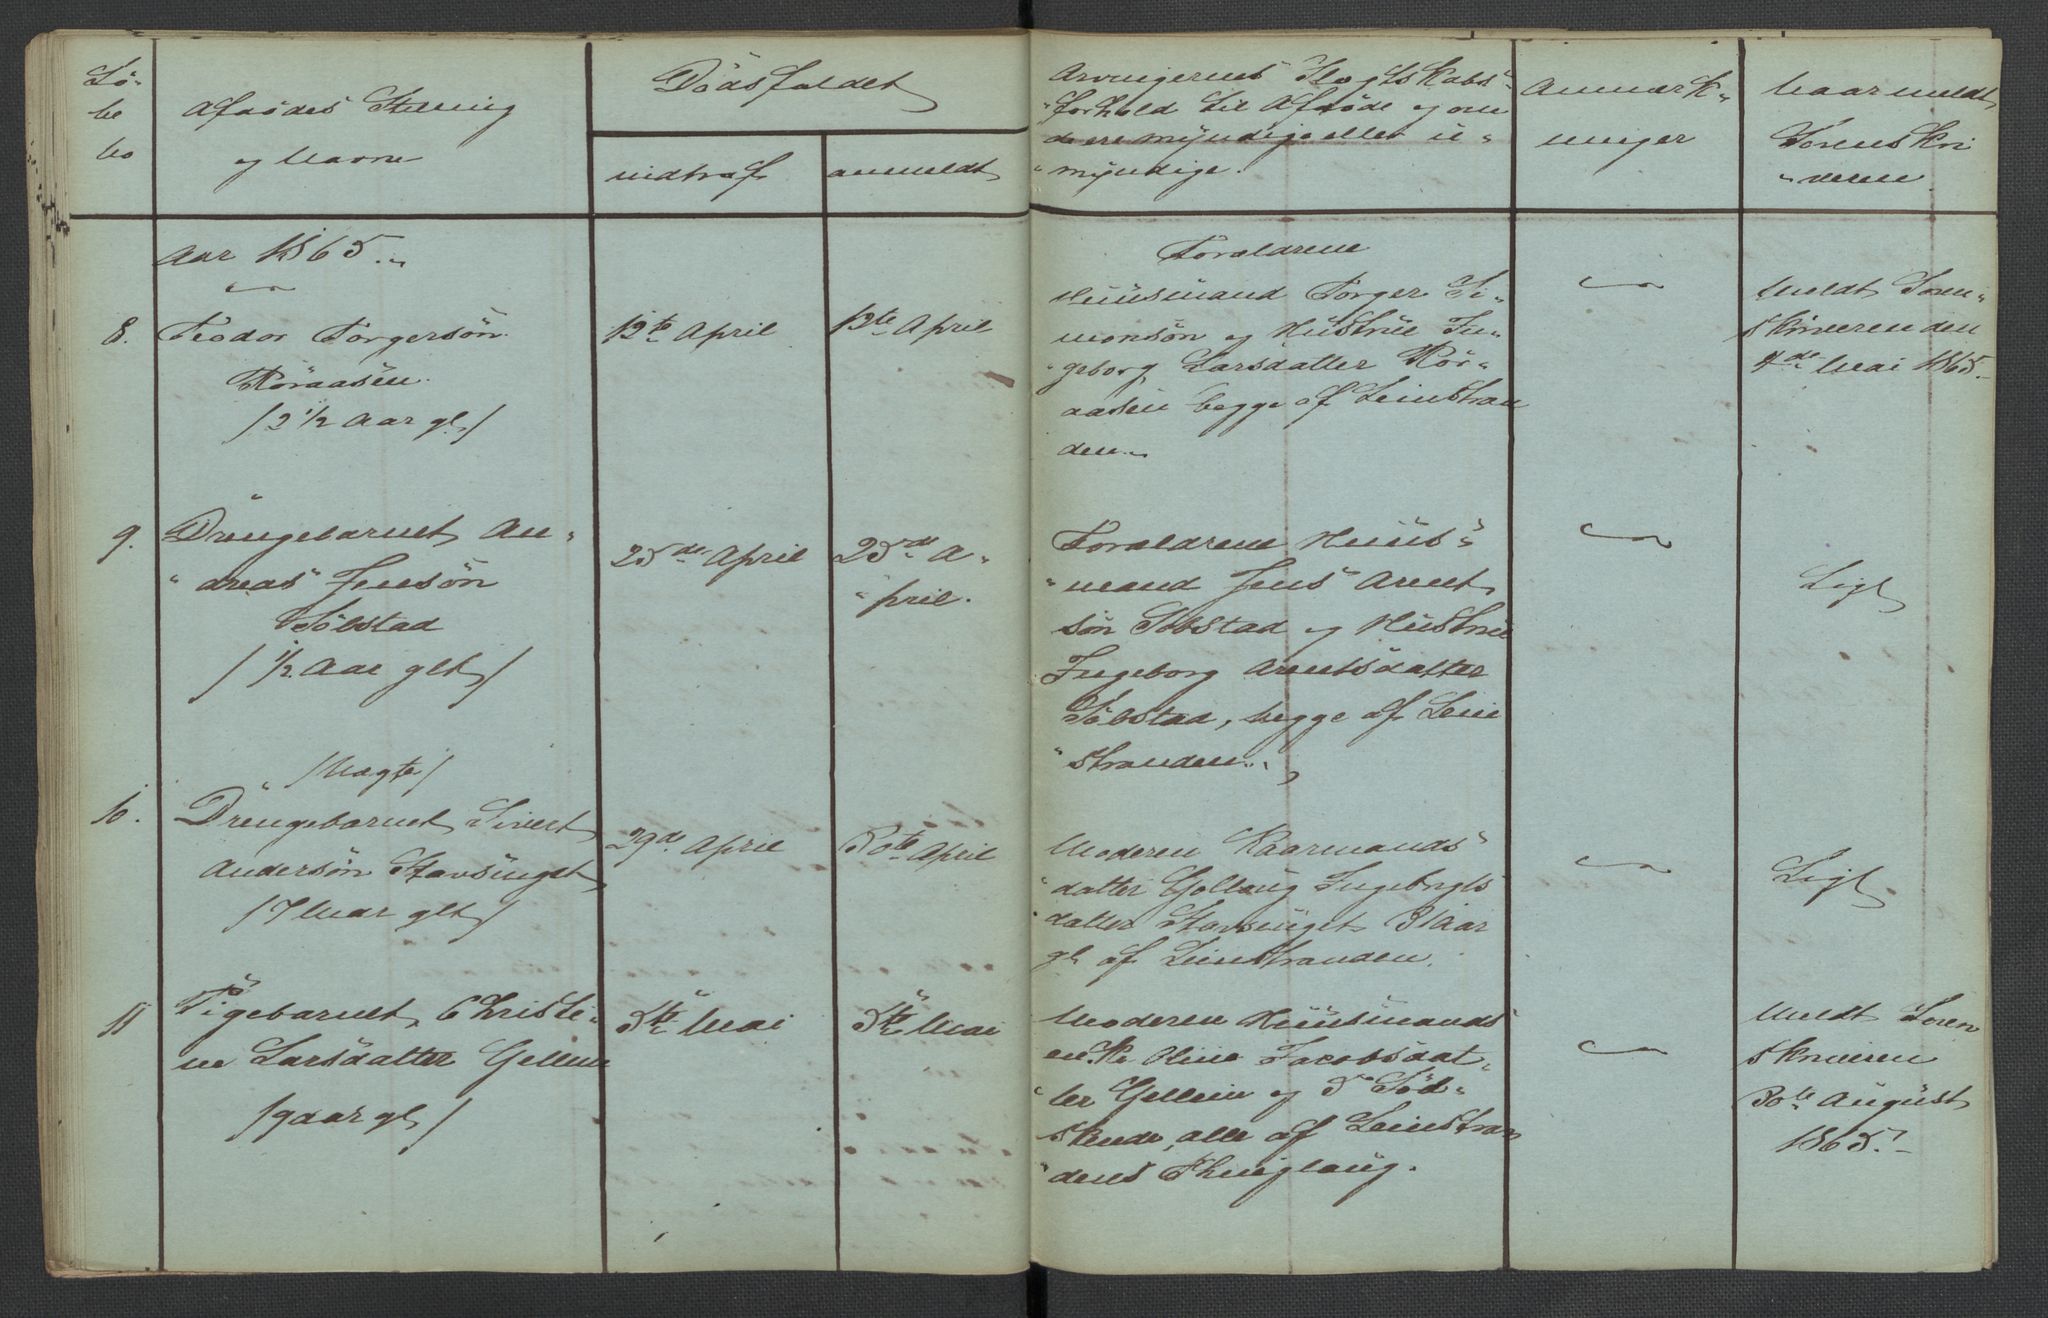 Lö-
be
No
Afdödes Stilling
og Navne
Dödsfaldet
indtraf
anmeldt
Arvingernes Slægtskabs-
"forhold til Afdöde og om
de ere myndige eller u-
"myndige.
Anmærk-
ninger
Naar meldt
Sorenskri
"veren
Aar 1865.
8.
Teodor Torgersön
Röraasen
/2 1/2 Aar gl/
12te April
13te April
Forældrene
Huusmand Torger Si-
monsön og Hustrue In-
"geborg Larsdatter Rör-
aasen begge af Leinstran
den.
Meldt Soren-
skriveren den
4de Mai 1865.
9.
Drengebarnet An-
"dreas Jensön
Söbstad
/1/2 Aar glt/
25de April
25de A-
"pril.
Forældrene Huus-
"mand Jens Arent
sön Söbstad og Hustrue
Ingeborg Arentsdatter
Söbstad, begge af Lein
"stranden.
Ligt
/Uægte/
10.
Drengebarnet Sivert
Andersön Stavsinget
/7 Aar glt/
29de April
30te April
Moderen Kaarmands
datter Gollaug Ingebrgts
"datter Stavsinget 31 Aar
gl af Leinstranden.
Ligt
11
Pigebarnet Christi-
ne Larsdatter Gellein
/9 aar gl/
5te Mai
5te Mai
Moderen Huusmands
enke Oline Jacobsdat-
"ter Gellein og 5 Söd-
skende, alle af Leinstran
"dens Thinglaug.
Meldt Soren
skriveren
30te August
1865.